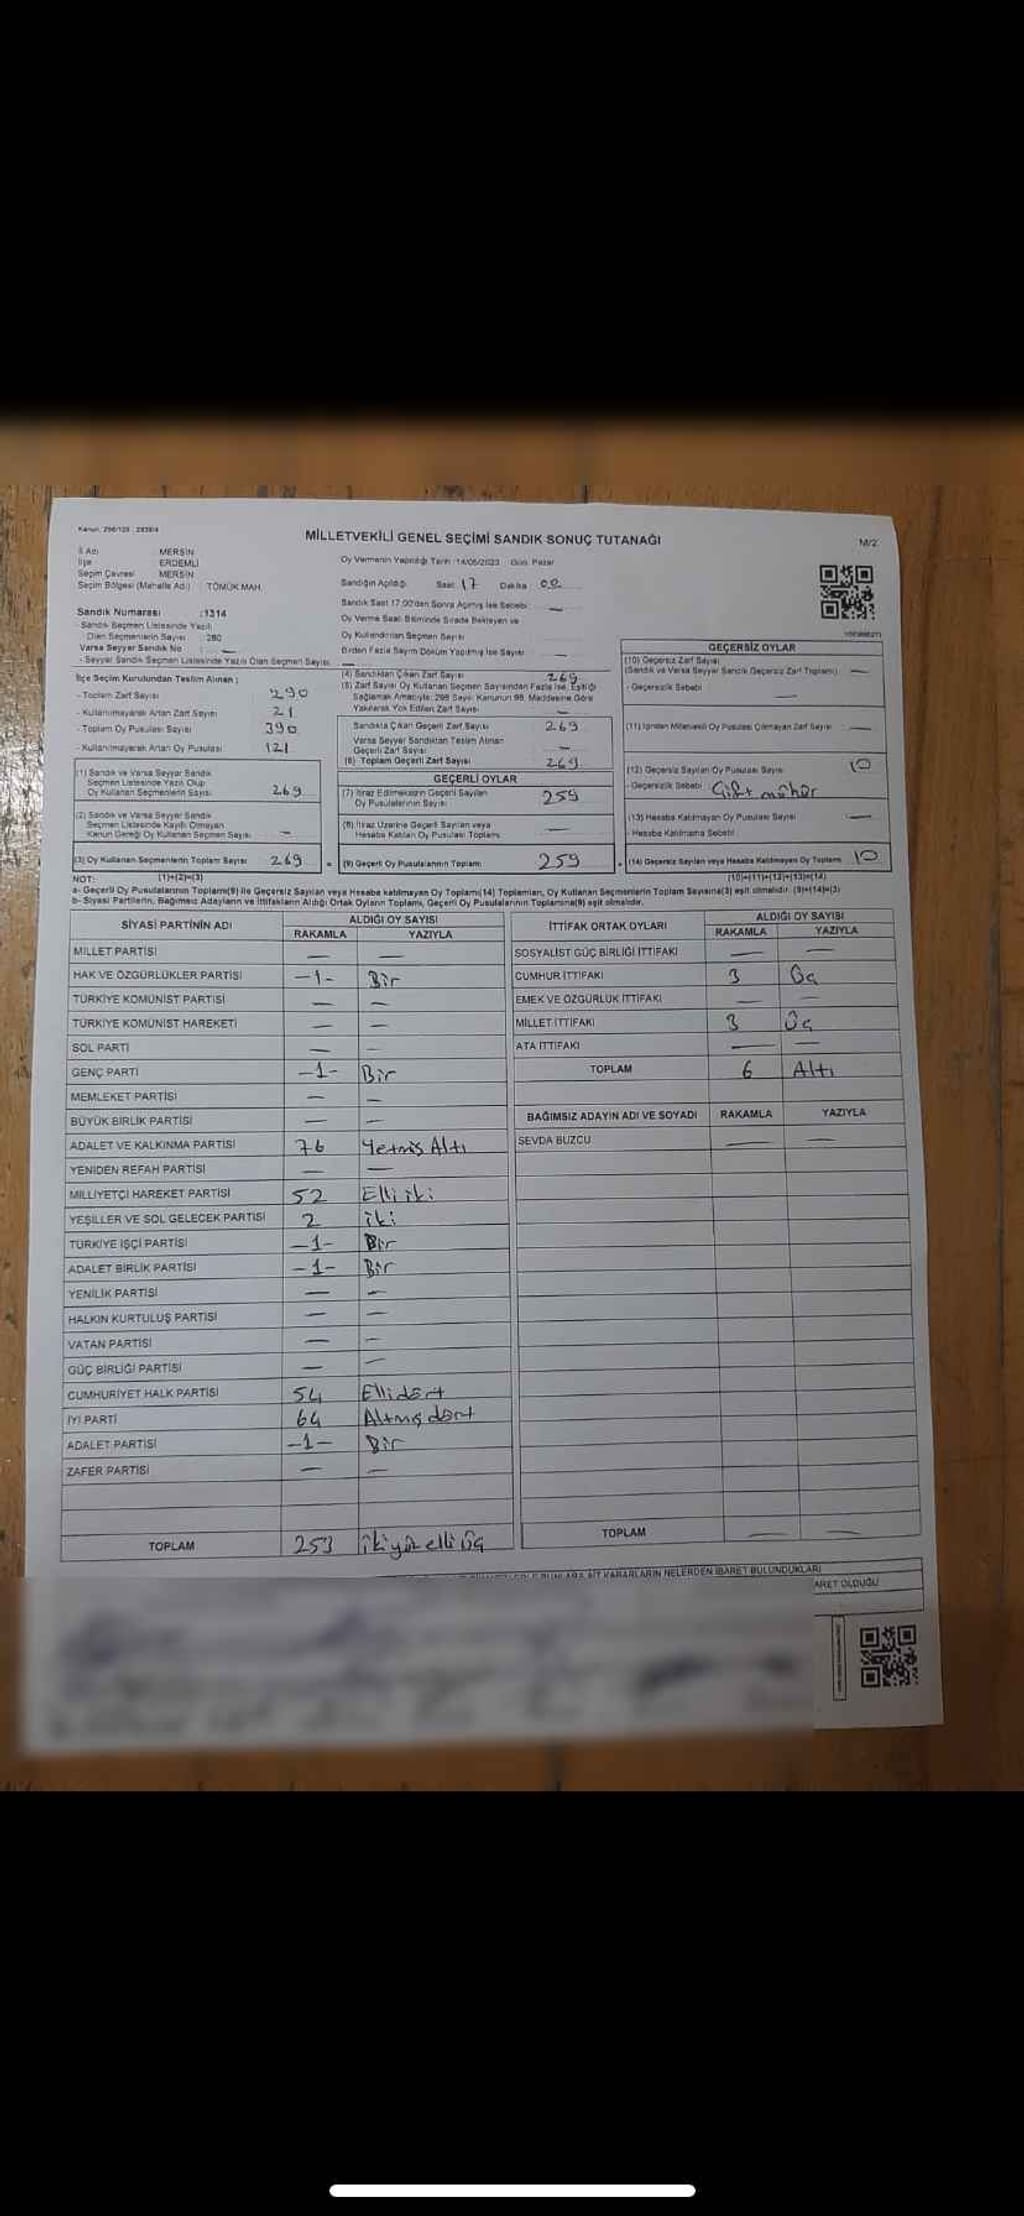 Kanun: 298/105 : 2839/4
MİLLETVEKİLİ GENEL SEÇİMİ SANDIK SONUÇ TUTANAĞI
M/2
İl Adı : MERSİN
İlçe : ERDEMLİ
Seçim Çevresi : MERSİN
Seçim Bölgesi (Mahalle Adı) : TÖMÜK MAH.
Oy Vermenin Yapıldığı Tarih : 14/05/2023 Gün: Pazar
Sandığın Açıldığı Saat: 17 Dakika : 00
Sandık Saat 17:00'den Sonra Açılmış İse Sebebi : —
Oy Verme Saati Bitiminde Sırada Bekleyen ve
Oy Kullandırılan Seçmen Sayısı
Birden Fazla Sayım Döküm Yapılmış İse Sayısı —
Sandık Numarası : 1314
- Sandık Seçmen Listesinde Yazılı
Olan Seçmenlerin Sayısı : 280
Varsa Seyyar Sandık No : —
- Seyyar Sandık Seçmen Listesinde Yazılı Olan Seçmen Sayısı : —
İlçe Seçim Kurulundan Teslim Alınan :
- Toplam Zarf Sayısı 290
- Kullanılmayarak Artan Zarf Sayısı 21
- Toplam Oy Pusulası Sayısı 390
- Kullanılmayarak Artan Oy Pusulası 121
(1) Sandık ve Varsa Seyyar Sandık
Seçmen Listesinde Yazılı Olup
Oy Kullanan Seçmenlerin Sayısı 269
(2) Sandık ve Varsa Seyyar Sandık
Seçmen Listesinde Kayıtlı Olmayan
Kanun Gereği Oy Kullanan Seçmen Sayısı —
(3) Oy Kullanan Seçmenlerin Toplam Sayısı 269
(1)+(2)=(3)
(4) Sandıktan Çıkan Zarf Sayısı 269
(5) Zarf Sayısı Oy Kullanan Seçmen Sayısından Fazla İse, Eşitliği
Sağlamak Amacıyla; 298 Sayılı Kanunun 98. Maddesine Göre
Yakılarak Yok Edilen Zarf Sayısı —
Sandıkta Çıkan Geçerli Zarf Sayısı 269
Varsa Seyyar Sandıktan Teslim Alınan
Geçerli Zarf Sayısı —
(6) Toplam Geçerli Zarf Sayısı 269
GEÇERLİ OYLAR
(7) İtiraz Edilmeksizin Geçerli Sayılan
Oy Pusulalarının Sayısı 259
(8) İtiraz Üzerine Geçerli Sayılan veya
Hesaba Katılan Oy Pusulası Toplamı —
(9) Geçerli Oy Pusulalarının Toplamı 259
GEÇERSİZ OYLAR
(10) Geçersiz Zarf Sayısı
(Sandık ve Varsa Seyyar Sandık Geçersiz Zarf Toplamı) —
- Geçersizlik Sebebi —
(11) İçinden Milletvekili Oy Pusulası Çıkmayan Zarf Sayısı —
(12) Geçersiz Sayılan Oy Pusulası Sayısı 10
- Geçersizlik Sebebi Çift mühür
(13) Hesaba Katılmayan Oy Pusulası Sayısı —
- Hesaba Katılmama Sebebi :
(14) Geçersiz Sayılan veya Hesaba Katılmayan Oy Toplamı 10
(10)+(11)+(12)+(13)=(14)
NOT:
a- Geçerli Oy Pusulalarının Toplamı(9) ile Geçersiz Sayılan veya Hesaba katılmayan Oy Toplamı(14) Toplamları, Oy Kullanan Seçmenlerin Toplam Sayısına(3) eşit olmalıdır. (9)+(14)=(3)
b- Siyasi Partilerin, Bağımsız Adayların ve İttifakların Aldığı Ortak Oyların Toplamı, Geçerli Oy Pusulalarının Toplamına(9) eşit olmalıdır.
SİYASİ PARTİNİN ADI
ALDIĞI OY SAYISI
RAKAMLA YAZIYLA
MİLLET PARTİSİ — —
HAK VE ÖZGÜRLÜKLER PARTİSİ -1- Bir
TÜRKİYE KOMÜNİST PARTİSİ — —
TÜRKİYE KOMÜNİST HAREKETİ — —
SOL PARTİ — —
GENÇ PARTİ -1- Bir
MEMLEKET PARTİSİ — —
BÜYÜK BİRLİK PARTİSİ — —
ADALET VE KALKINMA PARTİSİ 76 Yetmiş Altı
YENİDEN REFAH PARTİSİ — —
MİLLİYETÇİ HAREKET PARTİSİ 52 Elli iki
YEŞİLLER VE SOL GELECEK PARTİSİ 2 iki
TÜRKİYE İŞÇİ PARTİSİ -1- Bir
ADALET BİRLİK PARTİSİ -1- Bir
YENİLİK PARTİSİ — —
HALKIN KURTULUŞ PARTİSİ — —
VATAN PARTİSİ — —
GÜÇ BİRLİĞİ PARTİSİ — —
CUMHURİYET HALK PARTİSİ 54 Ellidört
İYİ PARTİ 64 Altmış dört
ADALET PARTİSİ -1- Bir
ZAFER PARTİSİ — —
TOPLAM 253 ikiyüz elli üç
İTTİFAK ORTAK OYLARI
ALDIĞI OY SAYISI
RAKAMLA YAZIYLA
SOSYALİST GÜÇ BİRLİĞİ İTTİFAKI — —
CUMHUR İTTİFAKI 3 Üç
EMEK VE ÖZGÜRLÜK İTTİFAKI — —
MİLLET İTTİFAKI 3 Üç
ATA İTTİFAKI — —
TOPLAM 6 Altı
BAĞIMSIZ ADAYIN ADI VE SOYADI RAKAMLA YAZIYLA
SEVDA BUZCU — —
TOPLAM — —
KARARLARIN NELERDEN İBARET BULUNDUKLARI
ARET OLDUĞU